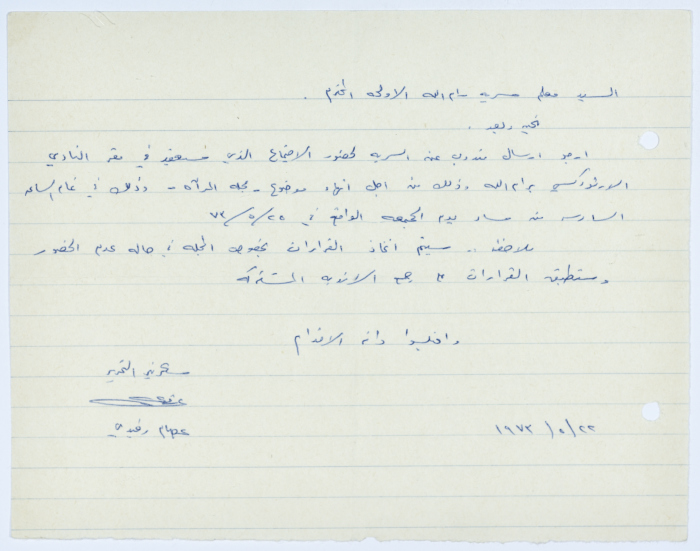 السيد معلم سرية رام الله الاولى المحترم .
تحية وبعد .
ارجو ارسال مندوب عن السرية لحضور الاجتماع الذي سيعقد في مقر النادي
الارثوذكسي برام الله وذلك من اجل انهاء موضوع - مجلة المرآه - وذلك في تمام الساعه
السادسه من مساء يوم الجمعه الواقع في ٧٣/٥/٢٥
ملاحظه .. سيتم اتخاذ القرارات بخصوص المجله في حاله عدم الحضور
وستطبق القرارات جميع الانديه المشتركه
واقبلوا الاحترام
التحرير
عصام رفيدي
١٩٧٣/٥/٢٢